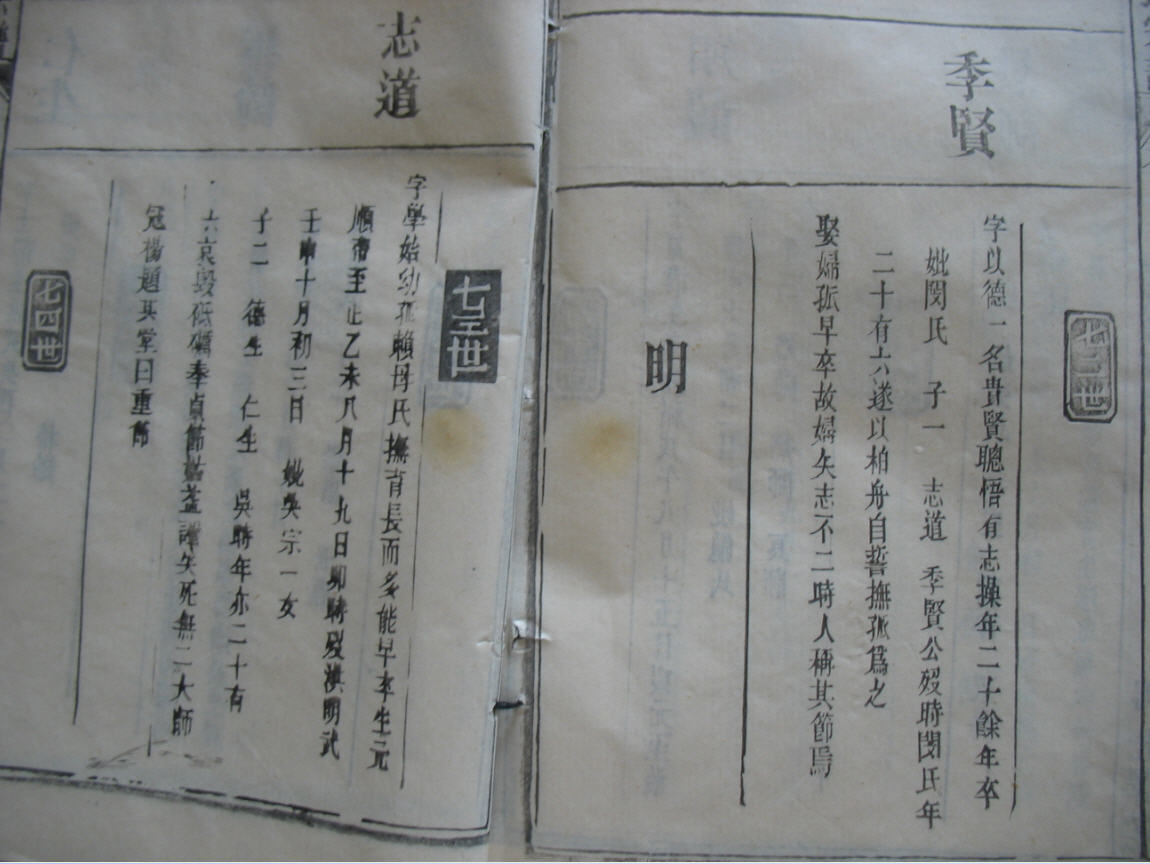 季賢
七二世
字以德一名貴賢聰悟有志操年二十餘年卒
妣閔氏 子一 志道 季賢公歿時閔氏年
二十有六遂以柏舟自誓撫孤為之
娶婦孤早卒故婦矢志不二時人稱其節焉
明
志道
七三世
字學始幼孤賴母氏撫育長而多能早卒生元
順帝至正乙未八月十九日卯時歿洪明武
壬申十月初三日 妣吳宗一女
子二 德生 仁生 吳時年亦二十有
六哀毀砥礪奉貞節姑並譚矢死無二大師
冠楊題其堂曰重節
七四世